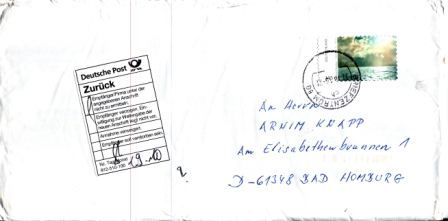 Deutsche Post
Zurück
Empfänger/Firma unter der
angegebenen Anschrift
nicht zu ermitteln.
Empfänger verzogen. Ein-
willigung zur Weitergabe der
neuen Anschrift liegt nicht vor.
Annahme verweigert.
Empfänger soll verstorben sein.
912-510-100
BRIEFZENTRUM 60
An Herrn
ARNIM KNAPP
Am Elisabethenbrunnen 1
D-61348 BAD HOMBURG